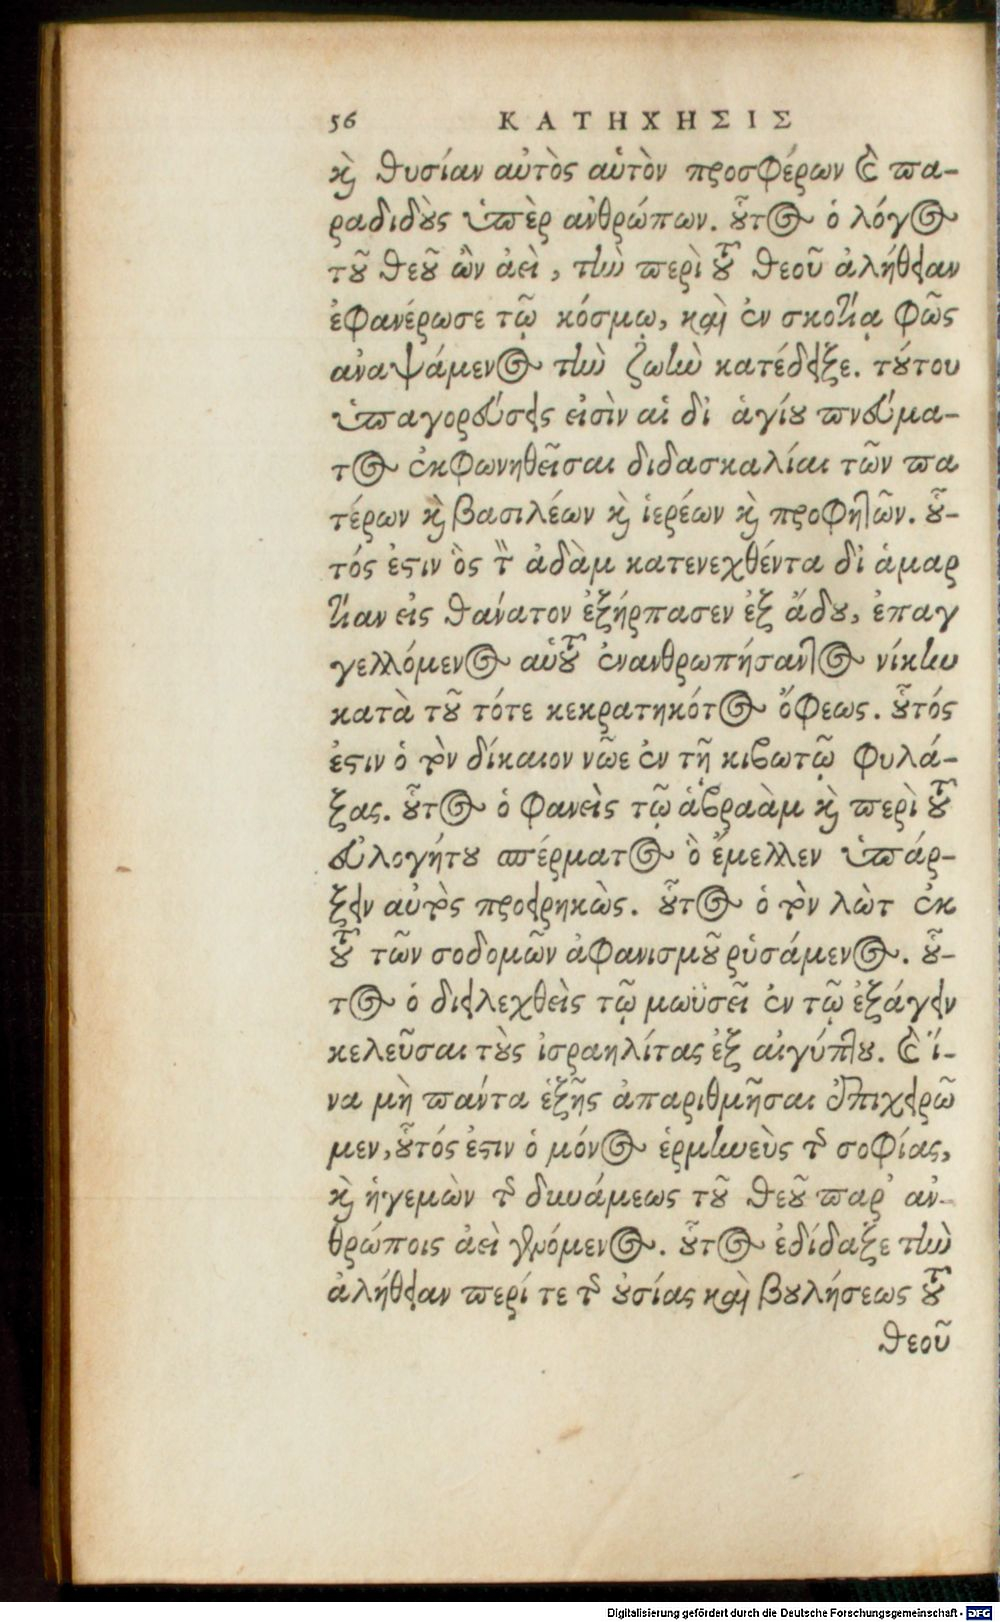 56 ΚΑΤΗΧΗΣΙΣ
καὶ θυσίαν αὐτὸς αὑτὸν προσφέρων καὶ πα-
ραδιδοὺς ὑπὲρ ἀνθρώπων. οὗτος ὁ λόγος
τοῦ θεοῦ ὢν ἀεὶ, τὴν περὶ τοῦ θεοῦ ἀλήθειαν
ἐφανέρωσε τῷ κόσμῳ, καὶ ἐν σκοτίᾳ φῶς
ἀναψάμενος τὴν ζωὴν κατέδειξε. τούτου
ὑπαγορεύσεις εἰσὶν αἱ δι' ἁγίου πνεύμα-
τος ἐκφωνηθεῖσαι διδασκαλίαι τῶν πα
τέρων καὶ βασιλέων καὶ ἱερέων καὶ προφητῶν. οὗ-
τός ἐστιν ὃς τὸν ἀδὰμ κατενεχθέντα δι' ἁμαρ
τίαν εἰς θάνατον ἐξήρπασεν ἐξ ᾅδου, ἐπαγ
γελλόμενος αὐτοῦ ἐνανθρωπήσαντος νίκην
κατὰ τοῦ τότε κεκρατηκότος ὄφεως. οὗτός
ἐστιν ὁ τὸν δίκαιον νῶε ἐν τῇ κιβωτῷ φυλά-
ξας. οὗτος ὁ φανεὶς τῷ ἀβραὰμ καὶ περὶ τοῦ
εὐλογήτου σπέρματος ὃ ἔμελλεν ὑπάρ-
ξειν αὐτὸς προειρηκὼς. οὗτος ὁ τὸν λὼτ ἐκ
τοῦ τῶν σοδομῶν ἀφανισμοῦ ῥυσάμενος. οὗ-
τος ὁ διαλεχθεὶς τῷ μωϋσεῖ ἐν τῷ ἐξάγειν
κελεῦσαι τοὺς ἰσραηλίτας ἐξ αἰγύπτου. καὶ ἵ-
να μὴ πάντα ἑξῆς ἀπαριθμῆσαι ἐπιχειρῶ
μεν, οὗτός ἐστιν ὁ μόνος ἑρμηνεὺς τῆς σοφίας,
καὶ ἡγεμὼν τῆς δυνάμεως τοῦ θεοῦ παρ' ἀν-
θρώποις ἀεὶ γενόμενος. οὗτος ἐδίδαξε τὴν
ἀλήθειαν περί τε τῆς οὐσίας καὶ βουλήσεως τοῦ
θεοῦ
Digitalisierung gefördert durch die Deutsche Forschungsgemeinschaft - DFG